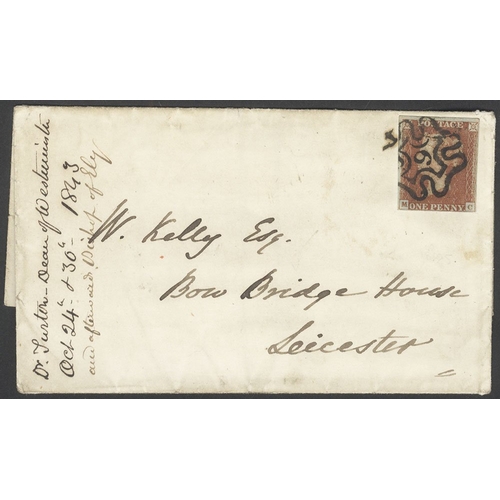 Dr. Turton - Dean of Westminster
Oct 24th & 30th 1843
and afterwards Bishop of Ely
POSTAGE
6
ONE PENNY
W. Kelly Esq.
Bow Bridge House
Leicester